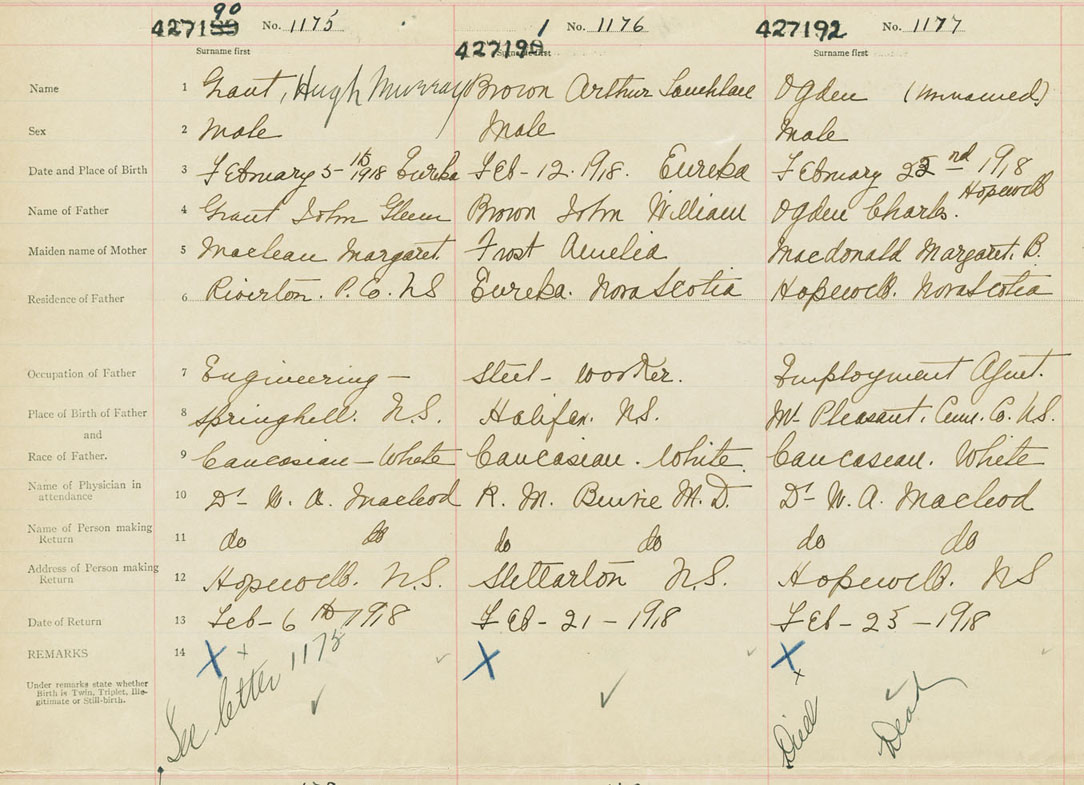 42719̶9̶ 90 No. 1175 427198 1 No. 1176 427192 No. 1177
Surname first Surname first Surname first
Name 1 Grant, Hugh Murray Brown Arthur Ogden (Unnamed)
Sex 2 Male Male Male
Date and Place of Birth 3 February 5-th 1918 Eureka Feb-12.1918. Eureka February 22nd 1918
Hopewell
Name of Father 4 Grant John Glenn Brown John William Ogden Charls.
Maiden name of Mother 5 Maclean Margaret. Frost Amelia Macdonald Margaret. B.
Residence of Father 6 Riverton. P. Co. NS Eureka. Nova Scotia Hopewell. Nova Scotia
Occupation of Father 7 Engineering - Steel - worker. Employment Agent.
Place of Birth of Father 8 Springhill. N.S. Halifax. N.S. Mt Pleasant. Cum. Co. N.S.
and
Race of Father. 9 Caucasian - White Caucasian. White. Caucasian. White
Name of Physician in
attendance 10 Dr W. A. Macleod R. M. M.D. Dr W. A. Macleod
Name of Person making
Return 11 do do do do do do
Address of Person making
Return 12 Hopewell. N.S. Stellarton N.S. Hopewell. NS
Date of Return 13 Feb-6th 1918 Feb-21-1918 Feb-25-1918
REMARKS 14 X x X X
Under remarks state whether
Birth is Twin, Triplet, Ille-
gitimate or Still-birth.
x
See letter 1175
Died
Dead